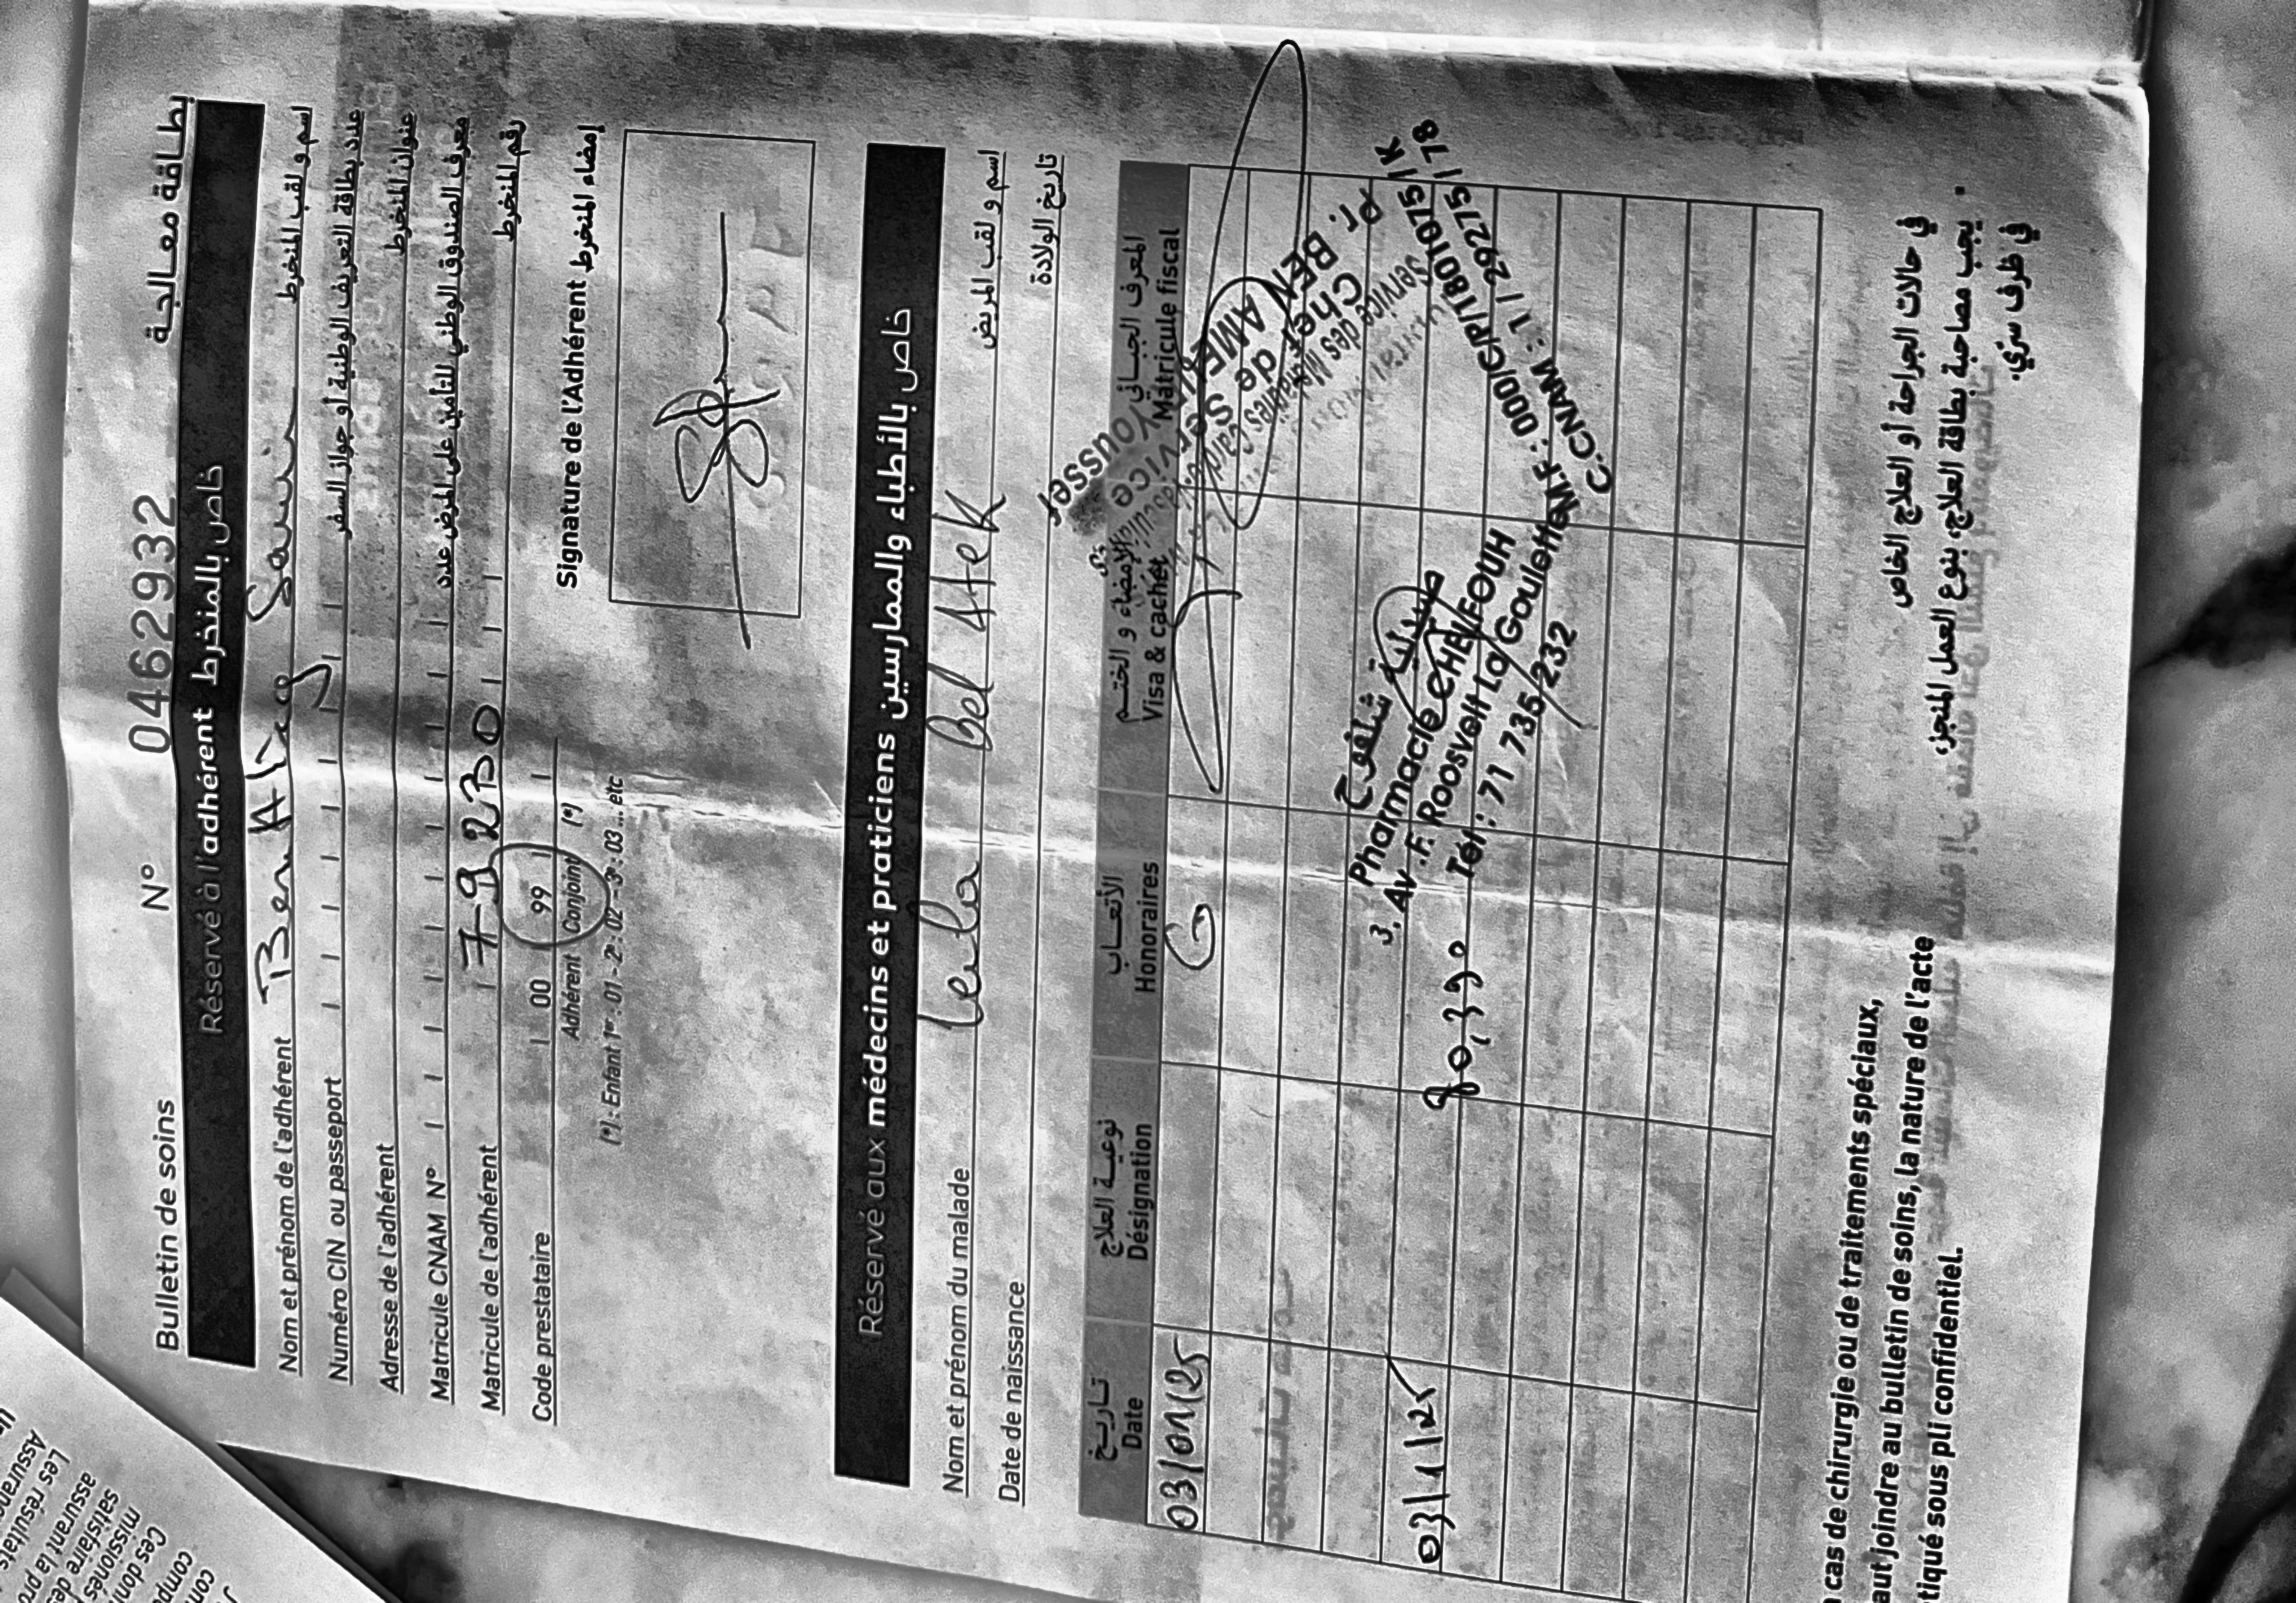 Bulletin de soins N° 04662932 بطاقة معالجة
Réservé à l'adhérent خاص بالمنخرط
Nom et prénom de l'adhérent Ben Alaya Sami اسم و لقب المنخرط
Numéro CIN ou passeport عدد بطاقة التعريف الوطنية أو جواز السفر
Adresse de l'adhérent عنوان المنخرط
Matricule CNAM N° معرف الصندوق الوطني للتأمين على المرض عدد
Matricule de l'adhérent 79230 رقم المنخرط
Code prestataire 00 99
Adhérent Conjoint (*)
(*) : Enfant 1er : 01 - 2e : 02 - 3e : 03 ... etc
Signature de l'Adhérent إمضاء المنخرط
Réservé aux médecins et praticiens خاص بالأطباء والممارسين
Nom et prénom du malade Leila Bel Atek اسم و لقب المريض
Date de naissance تاريخ الولادة
تاريخ نوعية العلاج الأتعاب الإمضاء و الختم المعرف الجبائي
Date Désignation Honoraires Visa & cachet Matricule fiscal
03/01/25
Pr. BEN AMEUR Youssef
Chef de Service
Service des Maladies
03/1/25 90,390
صيدلية شلفوح
Pharmacie CHELFOUH
3, Av .F. Roosvelt La Goulette
Tél : 71 735 232
M.F : 000/C/P/1801075/K
C.CNAM : 1 / 292275 / 78
cas de chirurgie ou de traitements spéciaux,
aut joindre au bulletin de soins, la nature de l'acte
tiqué sous pli confidentiel.
في حالات الجراحة أو العلاج الخاص
يجب مصاحبة بطاقة العلاج، بنوع العمل المنجز،
في ظرف سرّي.
Les résultats
Ces don